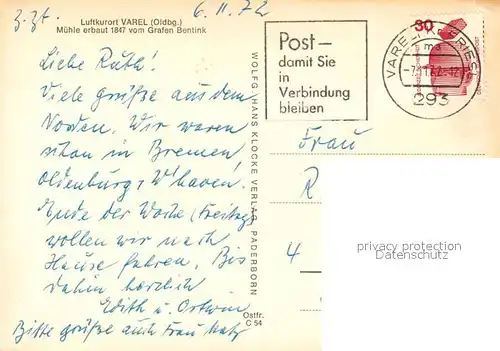 z.Zt.
6.11.72
Luftkurort VAREL (Oldbg.)
Mühle erbaut 1847 vom Grafen Bentink
Liebe Ruth!
Viele Grüße aus dem
Norden. Wir waren
schon in Bremen,
Oldenburg, W'haven.
Ende der Woche (Freitag)
wollen wir nach
Hause fahren. Bis
dahin herzlich
Edith u. Ortwin
Bitte grüße auch Frau
WOLFG. HANS KLOCKE VERLAG, PADERBORN
Ostfr.
C 54
Post–
damit Sie
in
Verbindung
bleiben
30
VAREL
ma
293
Frau
R
4
privacy protection
oldthing.de